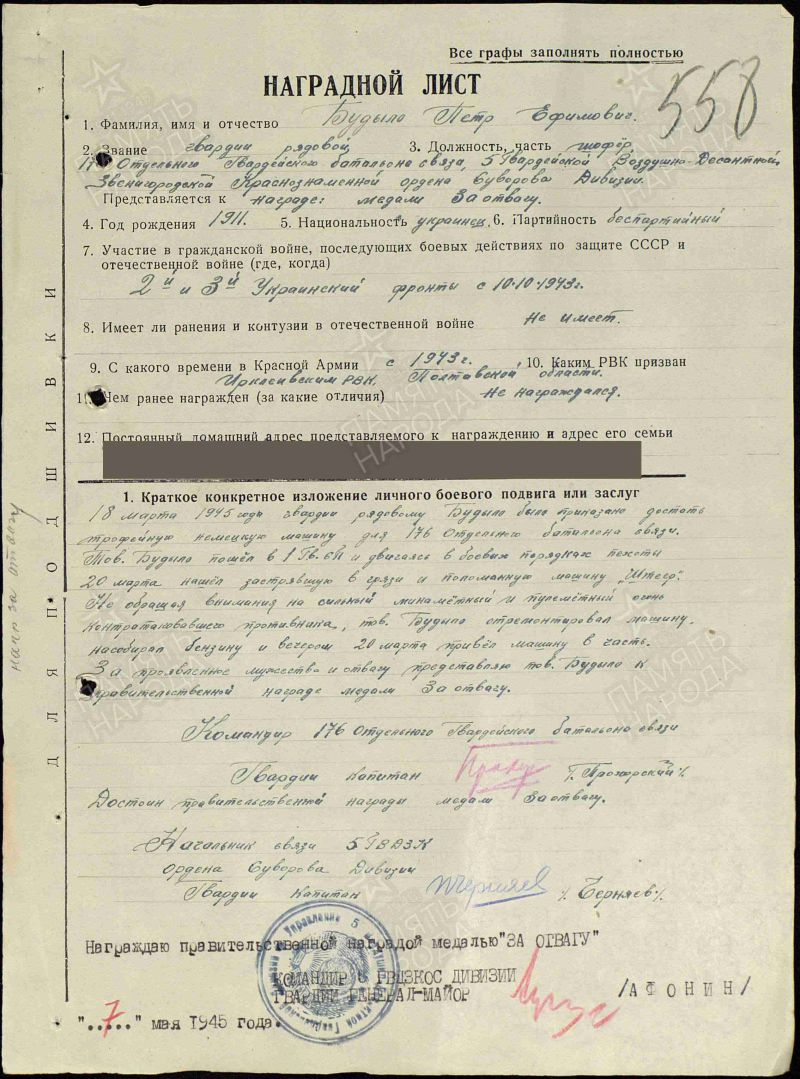 Все графы заполнять полностью
НАГРАДНОЙ ЛИСТ
558
1. Фамилия, имя и отчество Будыло Петр Ефимович.
2. Звание гвардии рядовой 3. Должность, часть шофёр,
Отдельного Гвардейского батальона связи, 5 Гвардейской Воздушно-Десантной,
Звенигородской Краснознаменной ордена Суворова Дивизии.
Представляется к награде: медали За отвагу.
4. Год рождения 1911. 5. Национальность украинец. 6. Партийность беспартийный
7. Участие в гражданской войне, последующих боевых действиях по защите СССР и
отечественной войне (где, когда)
2й и 3й Украинский фронты с 10.10.1943г.
8. Имеет ли ранения и контузии в отечественной войне Не имеет.
9. С какого времени в Красной Армии с 1943г. 10. Каким РВК призван
РВК. Полтавской области.
11. Чем ранее награжден (за какие отличия) Не награждался.
12. Постоянный домашний адрес представляемого к награждению и адрес его семьи
1. Краткое конкретное изложение личного боевого подвига или заслуг
18 марта 1945 года гвардии рядовому Будыло было приказано достать
трофейную немецкую машину для 176 Отдельного батальона связи.
Тов. Будыло пошёл в 1 Гв. СП и двигаясь в боевых порядках пехоты
20 марта нашёл застрявшую в грязи и поломанную машину "Штеер".
Не обращая внимания на сильный миномётный и пулемётный огонь
контратаковавшего противника, тов. Будыло отремонтировал машину,
насобирал бензину и вечером 20 марта привёл машину в часть.
За проявленное мужество и отвагу представляю тов. Будыло к
правительственной награде медали За отвагу.
Командир 176 Отдельного Гвардейского батальона связи
Гвардии капитан /Г. Прохорский/.
Достоин правительственной награды медали За отвагу.
Начальник связи 5 ГВДЗК
ордена Суворова Дивизии
Гвардии капитан Черняев /Черняев/.
Награждаю правительственной наградой медалью "ЗА ОТВАГУ"
КОМАНДИР 5 ГВДЗКОС ДИВИЗИИ
ГВАРДИИ ГЕНЕРАЛ-МАЙОР /АФОНИН/
"7" мая 1945 года.
ДЛЯ ПОДШИВКИ
нагр за отвагу
ПАМЯТЬ НАРОДА